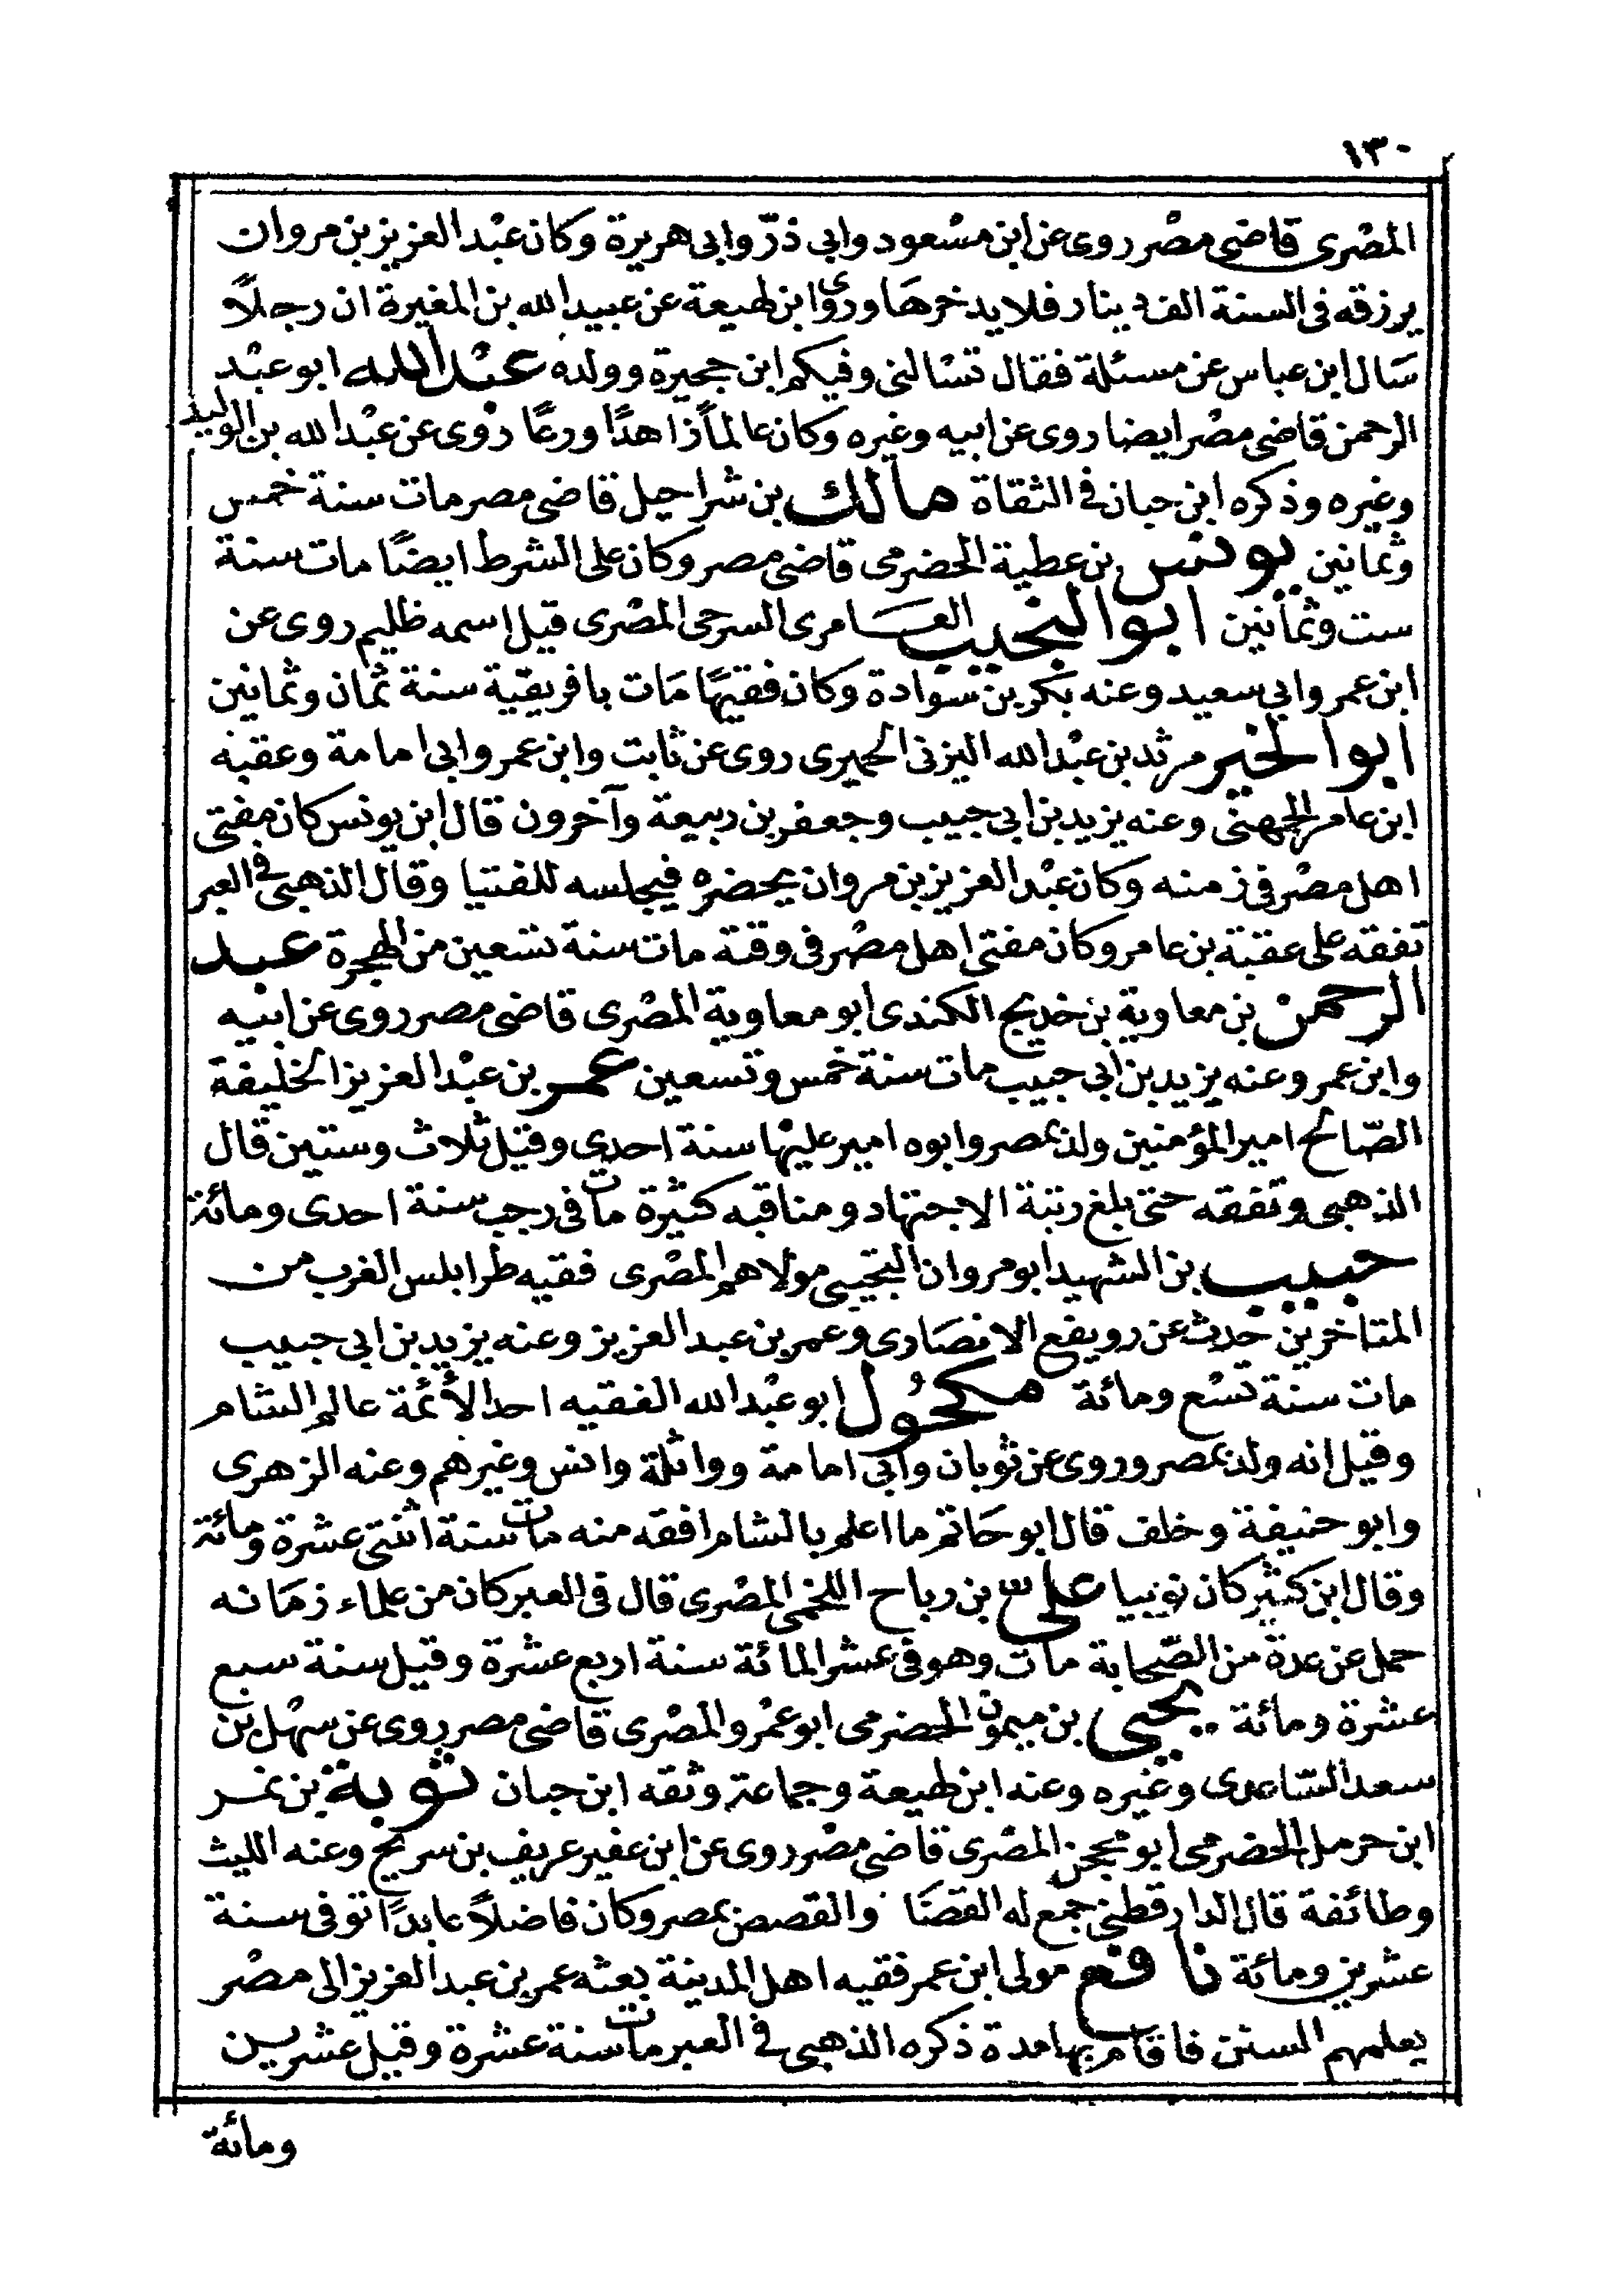 ١٣٠
المصْرى قاضى مصْر روى عن ابن مسْعود وابى ذرّ وابى هريرة وكان عبْد العزيز بن مروان
يرزقه فى السنة الف دينار فلا يدخرهَا وروى ابن لهيعة عن عبيد الله بن المغيرة ان رجلاً
سَال ابن عباس عن مسئلة فقال تسْالنى وفيكم ابن حجيرة وولده عبْد الله ابو عبْد
الرحمن قاضى مصْر ايضا روى عن ابيه وغيره وكان عالماً زاهدًا ورعًا روى عن عبْد الله بن الوليد
وغيره وذكره ابن حبان فى الثقاة مالك بن شراحيل قاضى مصر مات سنة خمس
وثمانين يونس بن عطية الحضرمى قاضى مصر وكان على الشرط ايضًا مات سنة
ست وثمانين ابو النجيب العَامرى السرحى المصْرى قيل اسمه ظليم روى عن
ابن عمر وابي سعيد وعنه بكر بن سوادة وكان فقيهًا مَات بافريقية سنة ثمان وثمانين
ابو الخير مرثد بن عبْد الله اليزنى الحميرى روى عن ثابت وابن عمر وابى امامة وعقبة
ابن عامر الجهنى وعنه يزيد بن ابى حبيب وجعفر بن ربيعة وآخرون قال ابن يونس كان مفتى
اهل مصْر فى زمنه وكان عبْد العزيز بن مروان يحضره فيجلسه للفتيا وقال الذهبى فى العبر
تفقه على عقبة بن عامر وكان مفتى اهل مصْر فى وقتة مات سنة تسعين من الهجرة عبد
الرحمنْ بن معاوية بن خديج الكندى ابو معاوية المصْرى قاضى مصر روى عن ابيه
وابن عمر وعنه يزيد بن ابى حبيب مات سنة خمس وتسعين عمر بن عبْد العزيز الخليفة
الصّالح امير المؤمنين ولد بمصر وابوه امير عليها سنة احدى وقيل ثلاث وستين قال
الذهبى وتفقه حتى بلغ رتبة الاجتهاد ومناقبه كثيرة مات فى رجب سنة احدى ومائة
حبيب بن الشهيد ابو مروان التجيبى مولاهم المصْرى فقيه طرابلس الغرب من
المتاخرين حدث عن رويفع الانصَارى وعمر بن عبد العزيز وعنه يزيد بن ابى حبيب
مات سنة تسْع ومائة مكحُول ابو عبْد الله الفقيه احد الأئمة عالم الشام
وقيل انه ولد بمصر وروى عن ثوبان وابى امامة وواثلة وانس وغيرهم وعنه الزهرى
وابو حنيفة وخلف قال ابو حَاتم ما اعلم بالشام افقه منه مات سنة اثنتى عشرة ومائة
وقال ابن كثير كان نوبيا علىّ بن رباح اللخمى المصْرى قال فى العبر كان من علماء زمَانه
حمل عن عدة من الصّحابة مات وهو فى عشر المائة سنة اربع عشرة وقيل سنة سبع
عشرة ومائة يحيى بن ميمون الحضرمى ابو عمْرو المصْرى قاضى مصر روى عن سهْل بن
سعد السّاعدى وغيره وعنه ابن لهيعة وجماعة وثقه ابن حبان توبة بن نمر
ابن حرمل الحضرمى ابو محجن المصْرى قاضى مصْر روى عن ابن عفير عريف بن سريح وعنه الليث
وطائفة قال الدارقطنى جمع له القضَا والقصص بمصر وكان فاضلاً عابدًا توفى سنة
عشرين ومائة نافع مولى ابن عمر فقيه اهل المدينة بعثه عمر بن عبد العزيز الى مصْر
يعلمهم السنن فاقام بها مدة ذكره الذهبى فى العبر مات سنة عشرة وقيل عشرين
ومائة